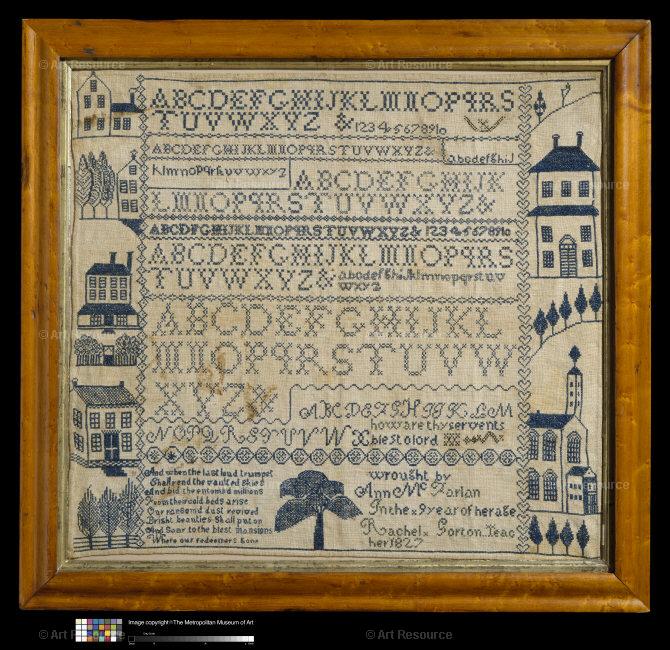 © Art Resource
© Art Resource
ABCDEFGHIJKLMNOPQRS
TUVWXYZ & 12345678910
ABCDEFGHIJKLMNOPQRSTUVWXYZ&
abcdefghij
klmnopqrstuvwxyz
ABCDEFGHIJK
LMNOPQRSTUVWXYZ&
ABCDEFGHIJKLMNOPQRSTUVWXYZ& 12345678910
ABCDEFGHIJKLMNOPQRS
TUVWXYZ& abcdefghijklmnopqrstuv
wxyz
ABCDEFGHIJKL
MNOPQRSTUVW
XYZ
ABCDEFGHIJKLM
how are thy servents
NOPQRSTUVWX
blest o lord
And when the last loud trumpet
Shall rend the vaulted skies
And bid the entombd millions
From their cold beds arise
Our ransomd dust revived
Bright beauties Shall put on
And Soar to the blest mansions
Where our redeemers gone
wrought by
Ann Mc Farlan
In the x 9 year of her age
Rachel x Gorton Teac
her 1827
© Art Resource
© Art Resource
Image copyright © The Metropolitan Museum of Art